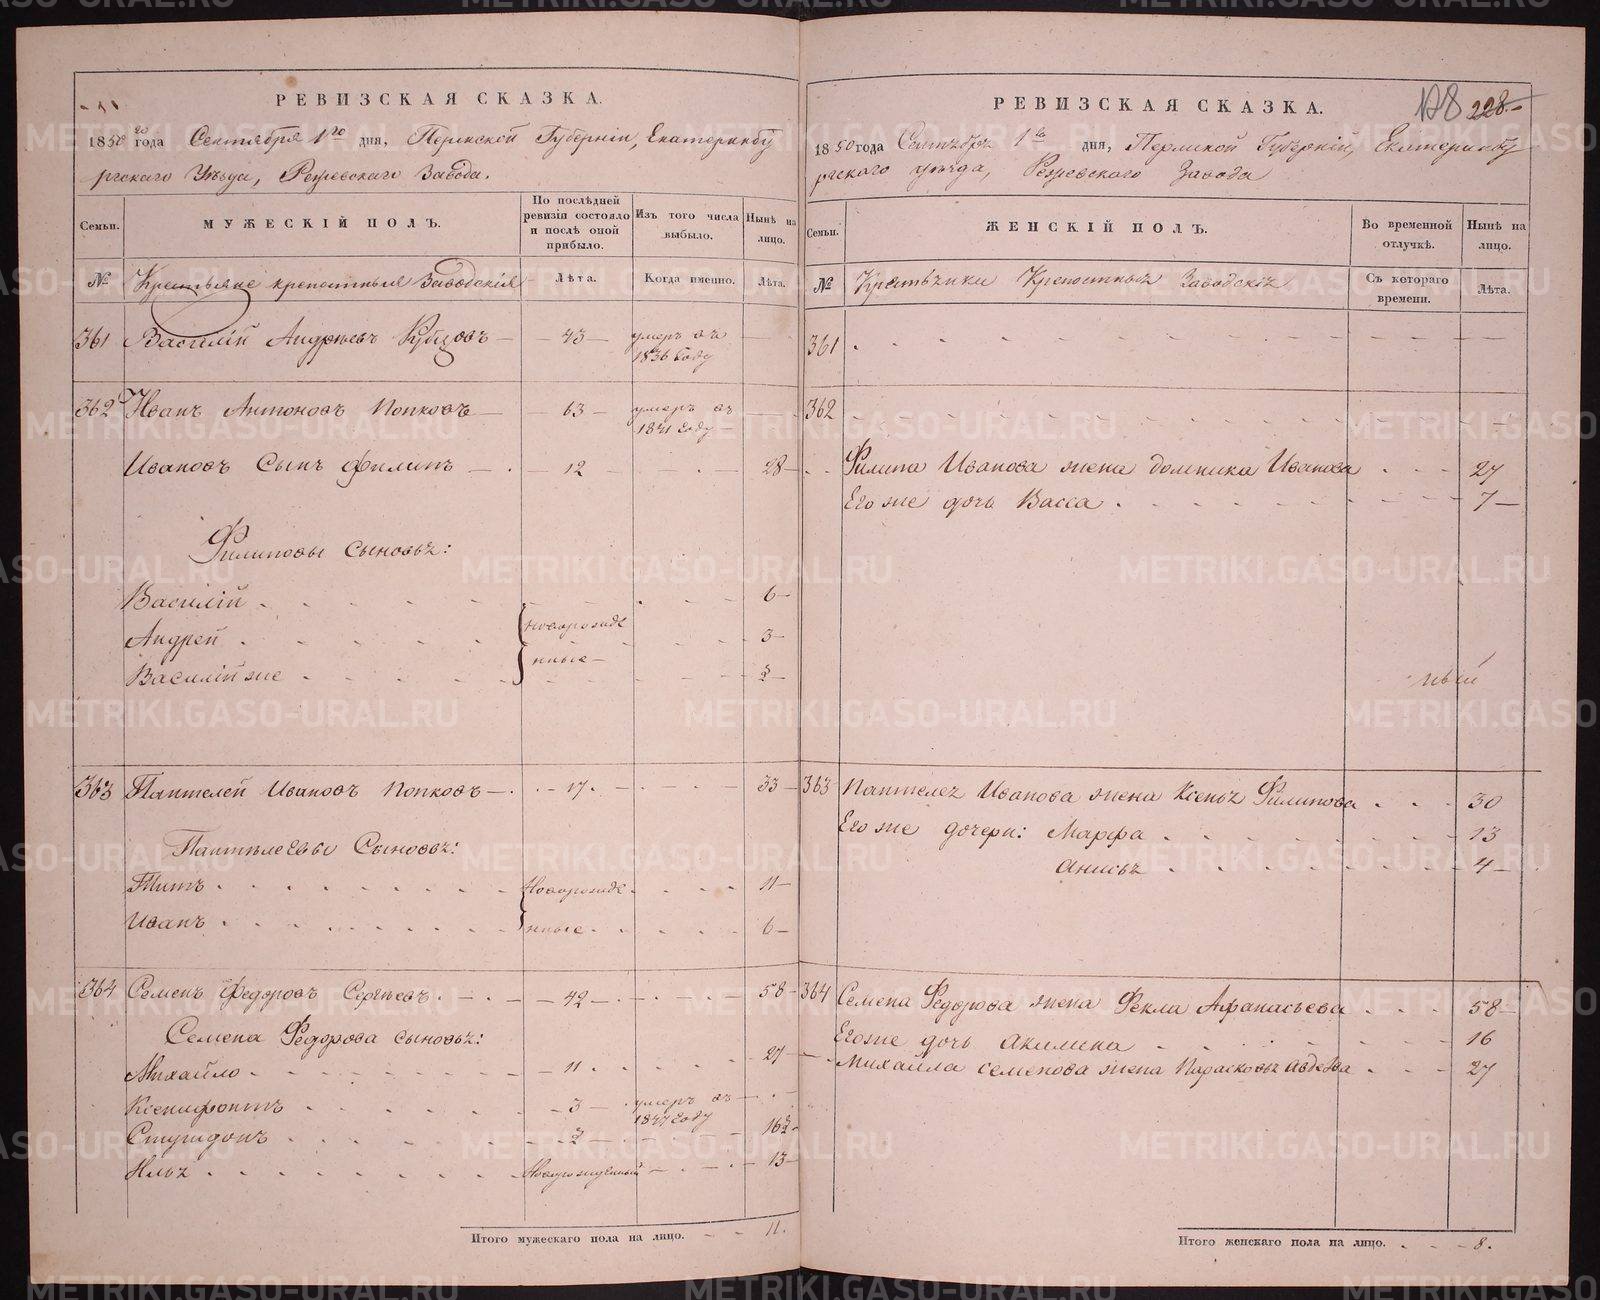 РЕВИЗСКАЯ СКАЗКА.
1850 года Сентября 1го дня, Пермской Губернiи, Екатеринбу
ргскаго Уѣзда, Режевскаго Завода.
Семьи.
МУЖЕСКIЙ ПОЛЪ.
По послѣдней ревизiи состояло и послѣ оной прибыло.
Изъ того числа выбыло.
Нынѣ на лицо.
№
Крестьяне крепостныя Заводскiя
Лѣта.
Когда именно.
Лѣта.
361 Василiй Андреевъ Кубцовъ — 43 — умеръ въ 1836 году
362 Иванъ Антоновъ Попковъ — 63 — умеръ въ 1841 году —
Ивановъ Сынъ Филипъ — 12 28 —
Филиповы сыновьѣ:
Василiй 6 —
Андрей новорожде 3 —
Василiй же нные — 1/2 —
363 Пантелей Ивановъ Попковъ — 17. 33 —
Пантелеевы Сыновьѣ:
Титъ новорожде 11 —
Иванъ нные 6 —
364 Семенъ Федоровъ Сергѣевъ 42 — 58 —
Семена Федорова сыновьѣ:
Михайло 11 27 —
Ксенифонтъ 3 — умеръ въ 1847 году
Спиридонъ 1/2 16 1/2
Илья Новорожденный — 13 —
Итого мужескаго пола на лицо. 11.
РЕВИЗСКАЯ СКАЗКА.
128 228
1850 года Сентября 1го дня, Пермской Губернiи, Екатеринбу
ргскаго уѣзда, Режевскаго Завода
Семьи.
ЖЕНСКIЙ ПОЛЪ.
Во временной отлучкѣ.
Нынѣ на лицо.
№
Крестьянки Крепостныѣ Заводскiѣ
Съ котораго времени.
Лѣта.
361
362
Филипа Иванова жена Домника Иванова 27
Его же дочь Васса 7 —
ный
363 Пантелеѣ Иванова жена Ксеньѣ Филипова 30
Его же дочери: Марфа 13
Анисьѣ 4 —
364 Семена Федорова жена Фекла Афанасьева 58 —
Его же дочь Акилина 16
Михайла Семенова жена Парасковьѣ Авдеева 27
Итого женскаго пола на лицо. 8.
METRIKI.GASO-URAL.RU